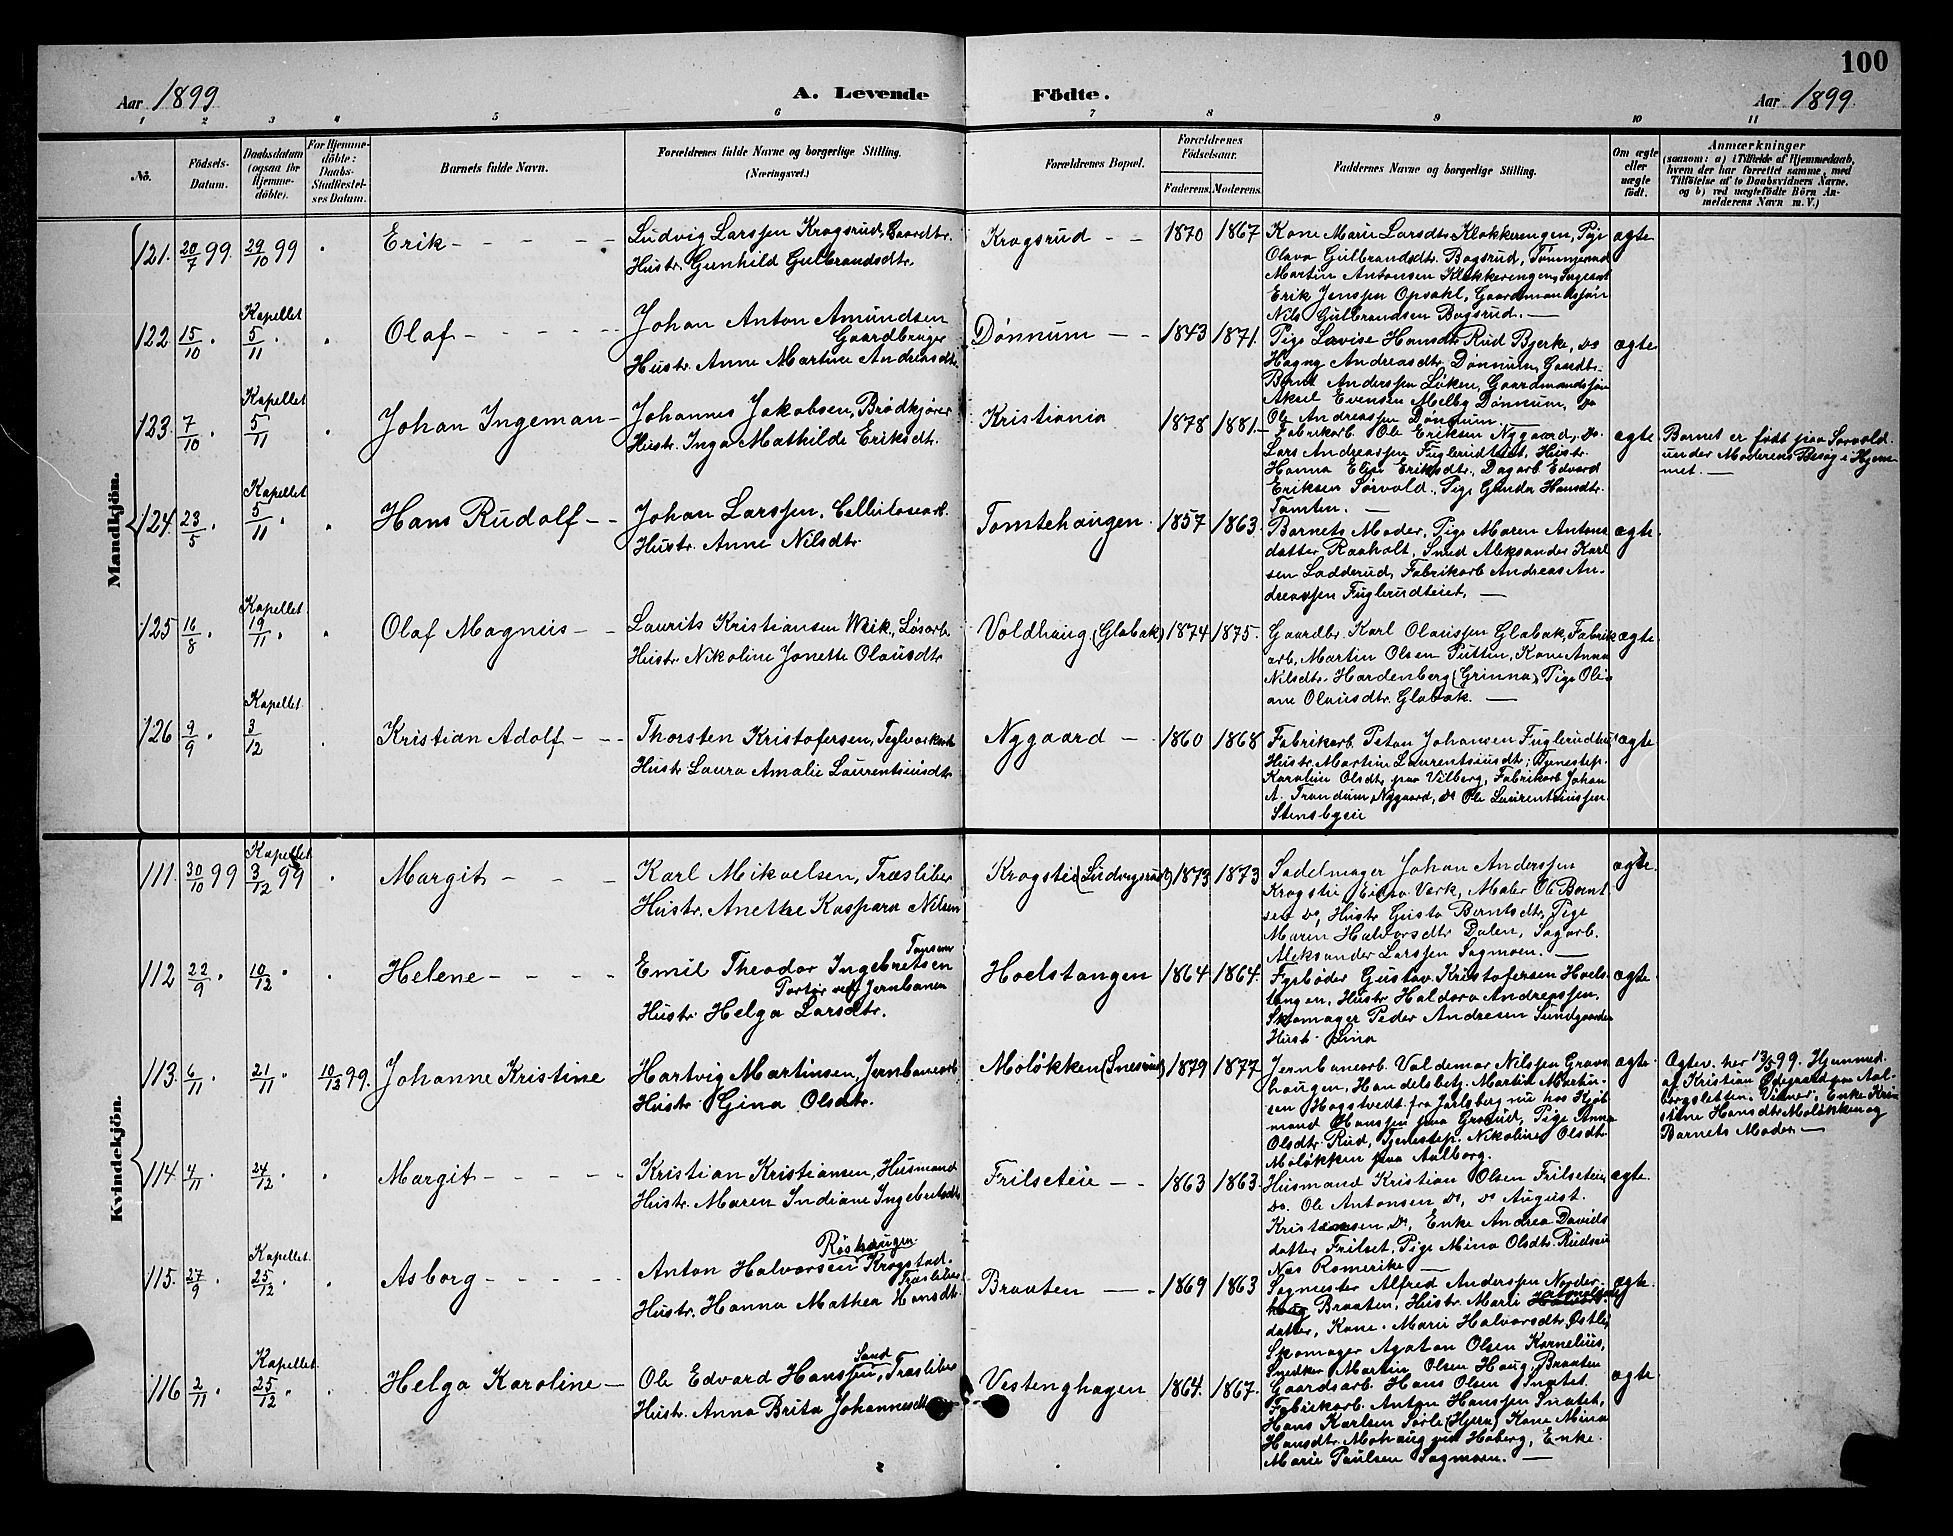 100
Aar 1899
A. Levende Födte.
Aar 1899
1 2 3 4 5 6 7 8 9 10 11
No.
Födsels-Datum.
Daabsdatum (ogsaa for Hjemme-döbte).
For Hjemme-döbte: Daabs-Stadfæstel-ses Datum.
Barnets fulde Navn.
Forældrenes fulde Navne og borgerlige Stilling.
(Næringsvei.)
Forældrenes Bopæl.
Forældrenes Födselsaar.
Faderens. Moderens.
Faddernes Navne og borgerlige Stilling.
Om ægte eller uægte födt.
Anmærkninger
(saasom: a) i Tilfælde af Hjemmedaab,
hvem der har forrettet samme, med
Tilföielse af to Daabsvidners Navne,
og b) ved uægtefödte Börn An-
melderens Navn m. V.)
Mandkjön.
121. 20/7 99. 29/10 99 " Erik - - - - -
Ludvig Larssen Krogsrud, Gaardbr.
Hustr. Gunhild Gulbrandsdtr.
Krogsrud - - 1870 1867
Kone Marie Larsdtr. Klokkerengen, Pige
Olava Gulbrandsdtr. Bogsrud, Tømmermd
Martin Antonsen Klokkerengen, Sagarb.
Erik Jenssen Opsahl, Gaardmandssøn
Nils Gulbrandsen Bogsrud. —
ægte
122 15/10 " Kapellet 5/11 " " Olaf - - - - -
Johan Anton Amundsen
Gaardbruger
Hustr. Anne Martine Andreasdtr.
Dønnum - - 1843 1871.
Pige Lovise Hansdtr. Rud Bjerke, do
Hagny Andreasdtr. Dønnum, Gaardbr.
Bernt Anderssen Løken, Gaardmandssøn
Aksel Evensen Melby Dønnum, do
Ole Andreassen Dønnum. —
ægte
123. 7/10 " Kapellet 5/11 " Johan Ingeman -
Johannes Jakobsen, Brødkjører
Hustr. Inga Mathilde Eriksdtr.
Kristiania 1878 1881.
Fabrikarb. Ole Eriksen Nygaard, do.
Lars Andreassen Fuglerudteiet, Hustr.
Hanna Elise Eriksdtr., Dagarb. Edvard
Eriksen Sørvold, Pige Gunda Hansdtr.
Tomten. —
ægte
Barnet er født paa Sørvold
under Moderens Besøg i Hjem-
met. —
124. 23/5 " Kapellet 5/11 " " Hans Rudolf - -
Johan Larssen, Cellulosearb.
Hustr. Anne Nilsdtr.
Tomtehaugen. 1857 1863.
Barnets Moder, Pige Maren Antons
datter Raaholt, Smed Aleksander Karl
sen Ladderud, Fabrikarb Andreas An-
dreassen Fuglerudteiet, —
ægte.
125 16/8 " Kapellet 19/11 " " Olaf Magnus - -
Laurits Kristiansen Wiik, Løsarb.
Hustr. Nikoline Jonette Olausdtr
Voldhaug (Glabak) 1874 1875.
Gaardbr. Karl Olaussen Glabak, Fabrik
arb. Martin Olsen Putten, Kone Anna
Nilsdtr. Hardenberg (Grinna), Pige Oli-
ane Olausdtr. Glabak. —
ægte
126 9/9 " Kapellet 3/12 " Kristian Adolf - - -
Thorsten Kristofersen, Teglverksarb
Hustr. Laura Amalie Laurentsiusdtr
Nygaard - - 1860 1868
Fabrikarb. Peter Johansen Fuglerudtei
Hustr. Martine Laurentsiusdtr, Tjenestep.
Karoline Olsdtr. paa Vilberg, Fabrikarb Johan
A. Trandum, Nygaard, do Ole Laurentsiussen
Stensbyeie
ægte
Kvindekjön.
111. 30/10 99 Kapellet 3/12 99 " Margit - - -
Karl Mikaelsen, Træsliber
Hustr. Anethe Kaspara Nilsen
Krogstie (Ludvigsrud) 1873 1873
Sadelmager Johan Anderssen
Krogstie, Eidsv. Verk, Maler Ole Bernt
sen do, Hustr. Gusta Berntsdtr, Pige
Maren Halvorsdtr Dalen, Sagarb.
Aleksander Larssen Sagmoen. —
ægte.
112 22/9 " 10/12 " " Helene - - - -
Emil Theodor Ingebretsen Tansem
Portør ved Jernbanen
Hustr. Helga Larsdtr.
Hoelstangen 1864 1864.
Fyrbøder Gustav Kristofersen Hoels-
tangen, Hustr Haldora Andreassen,
Skomager Peder Andresen Sundgaarden
Hustr. Lina
ægte
113. 6/11 " 21/11 " 10/12 99. Johanne Kristine
Hartvig Martinsen, Jernbanearb.
Hustr. Gina Olsdtr.
Moløkken (Snesrud) 1879 1877
Jernbanearb. Valdemar Nilssen Gravs
haugen, Handelsbetj. Martin Martin-
sen Hogstvedt fra Jarlsberg nu hos Kjøb
mand Hanssen paa Grøsud, Pige Anna
Olsdtr. Rud, Tjenestep. Nikoline Olsdtr.
Moløkken paa Aalborg.
ægte.
Ægtev. her 13/5 99. Hjemmed.
af Kristian Ødegaard paa Aal-
borgsletten. Vidner: Enke Kri-
stine Hansdtr Moløkken og
Barnets Moder —
114 4/11 " 24/12 " " Margit - - - -
Kristian Kristiansen, Husmand
Hustr. Maren Indiane Ingebretsdtr
Frilseteie - - 1863 1863.
Husmand Kristian Olsen Frilseteie,
do. Ole Antonsen do, do August
Kristiansen do, Enke Andrea Davids
datter Frilset, Pige Mina Olsdtr. Rudseie
Nes Romerike —
ægte.
115. 27/9 " Kapellet 25/12 " " Asborg - - - - -
Røshaugen
Anton Halvorsen Krogstad.
Træsliber
Hustr. Hanna Mathea Hansdtr.
Braaten - - 1869 1863
Sagmester Alfred Anderssen Norder-
haug Braaten, Hustr. Marie
datter, Kone Marie Halvorsdtr. Østli,
Skomager Agaton Olsen Kornelius,
Snedker Martin Olsen Haug, Braaten
ægte.
116 2/11 " Kapellet 25/12 " " Helga Karoline -
Ole Edvard Hanssen Sand, Træsliber
Hustr. Anna Brita Johannesdtr
Vestenghagen 1864. 1867.
Gaardsarb. Hans Olsen Snatet,
Fabrikarb. Anton Hanssen Snatet,
Hans Karlsen Sørli (Hjera), Kone Mina
Hansdtr. Mohaug ved Hoberg, Enke
Marie Paulsen Sagmoen. —
ægte